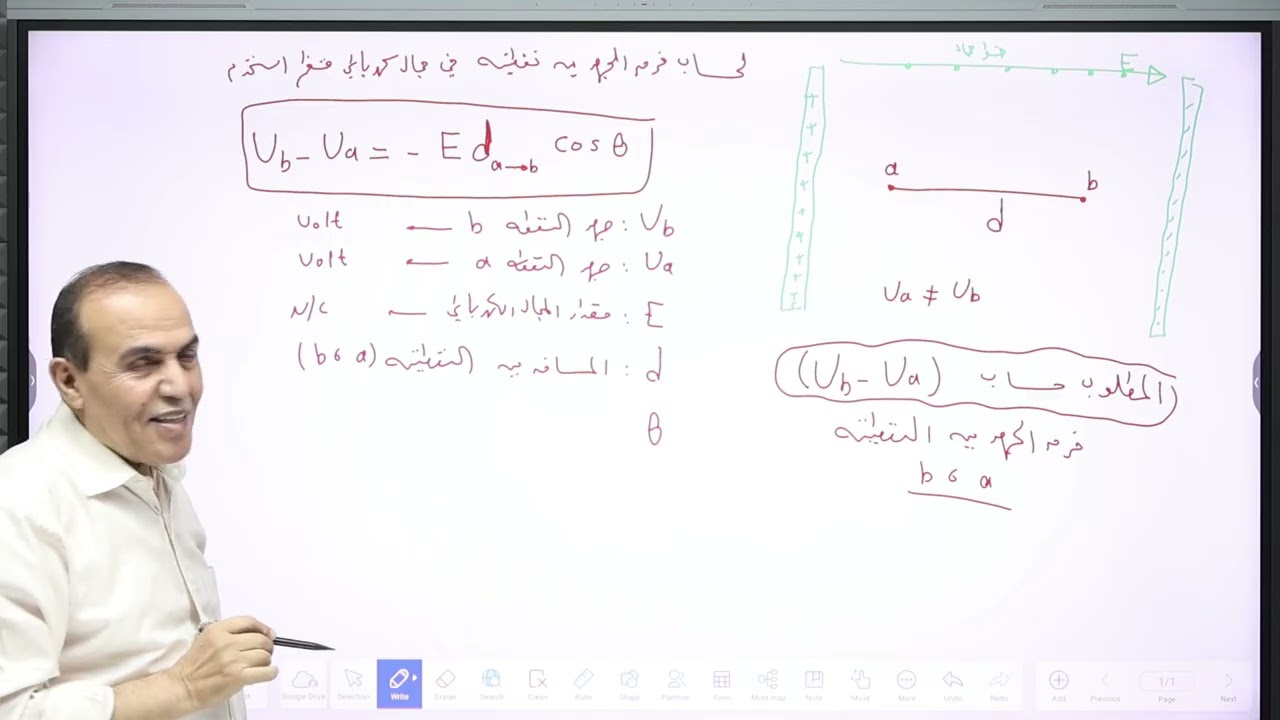 لحساب فرق الجهد بين نقطتين في مجال كهربائي منتظم استخدم
Vb - Va = - E d a→b cos θ
Vb : جهد النقطة b ← volt
Va : جهد النقطة a ← volt
E : مقدار المجال الكهربائي ← N/C
d : المسافة بين النقطتين (a ، b)
θ
E
+ + + + + + + +
a b
d
Va ≠ Vb
المطلوب حساب (Vb - Va)
فرق الجهد بين النقطتين
a ، b
Google Drive
Selection
Write
Eraser
Search
Clean
Ruler
Shape
Partition
Form
Mind map
Note
Move
More
Undo
Redo
Add
Previous
1/1
Page
Next